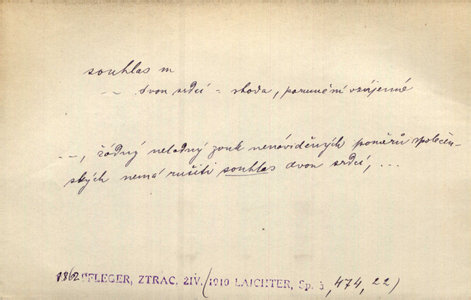 souhlas m
-- dvou srdcí = shoda, porozumění vzájemné
--, žádný neladný zvuk nenáviděných poměrů společen-
ských nemá rušiti souhlas dvou srdcí, ...
1862 PFLEGER, ZTRAC. ŽIV. (1910 LAICHTER, Sp. 3, 474, 22)